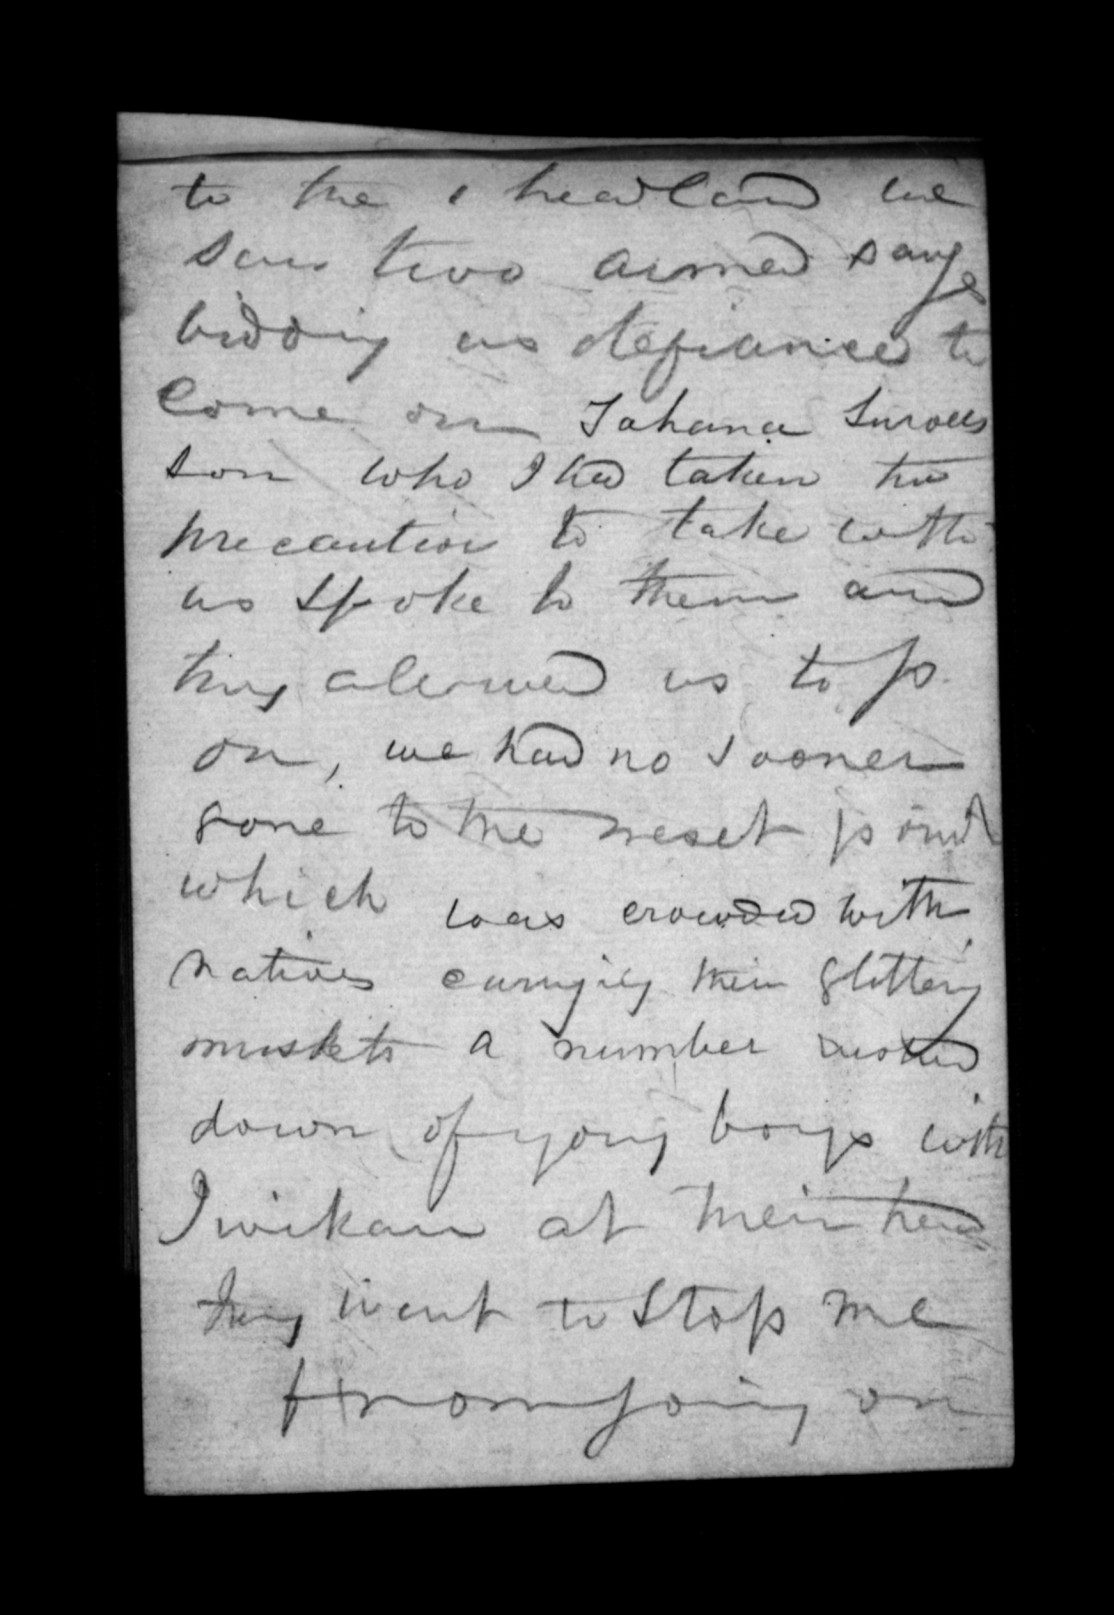 to the headland we
saw two armed savge
bidding us defiance to
come on Tahana
son who I had taken the
precaution to take with
us spoke to them and
they allowed us to
on, we had no sooner
gone to the next point
which was crowded with
natives carrying their glittering
muskets a number rushed
down of young boys with
Iwikau at their head
they went to stop me
from going on